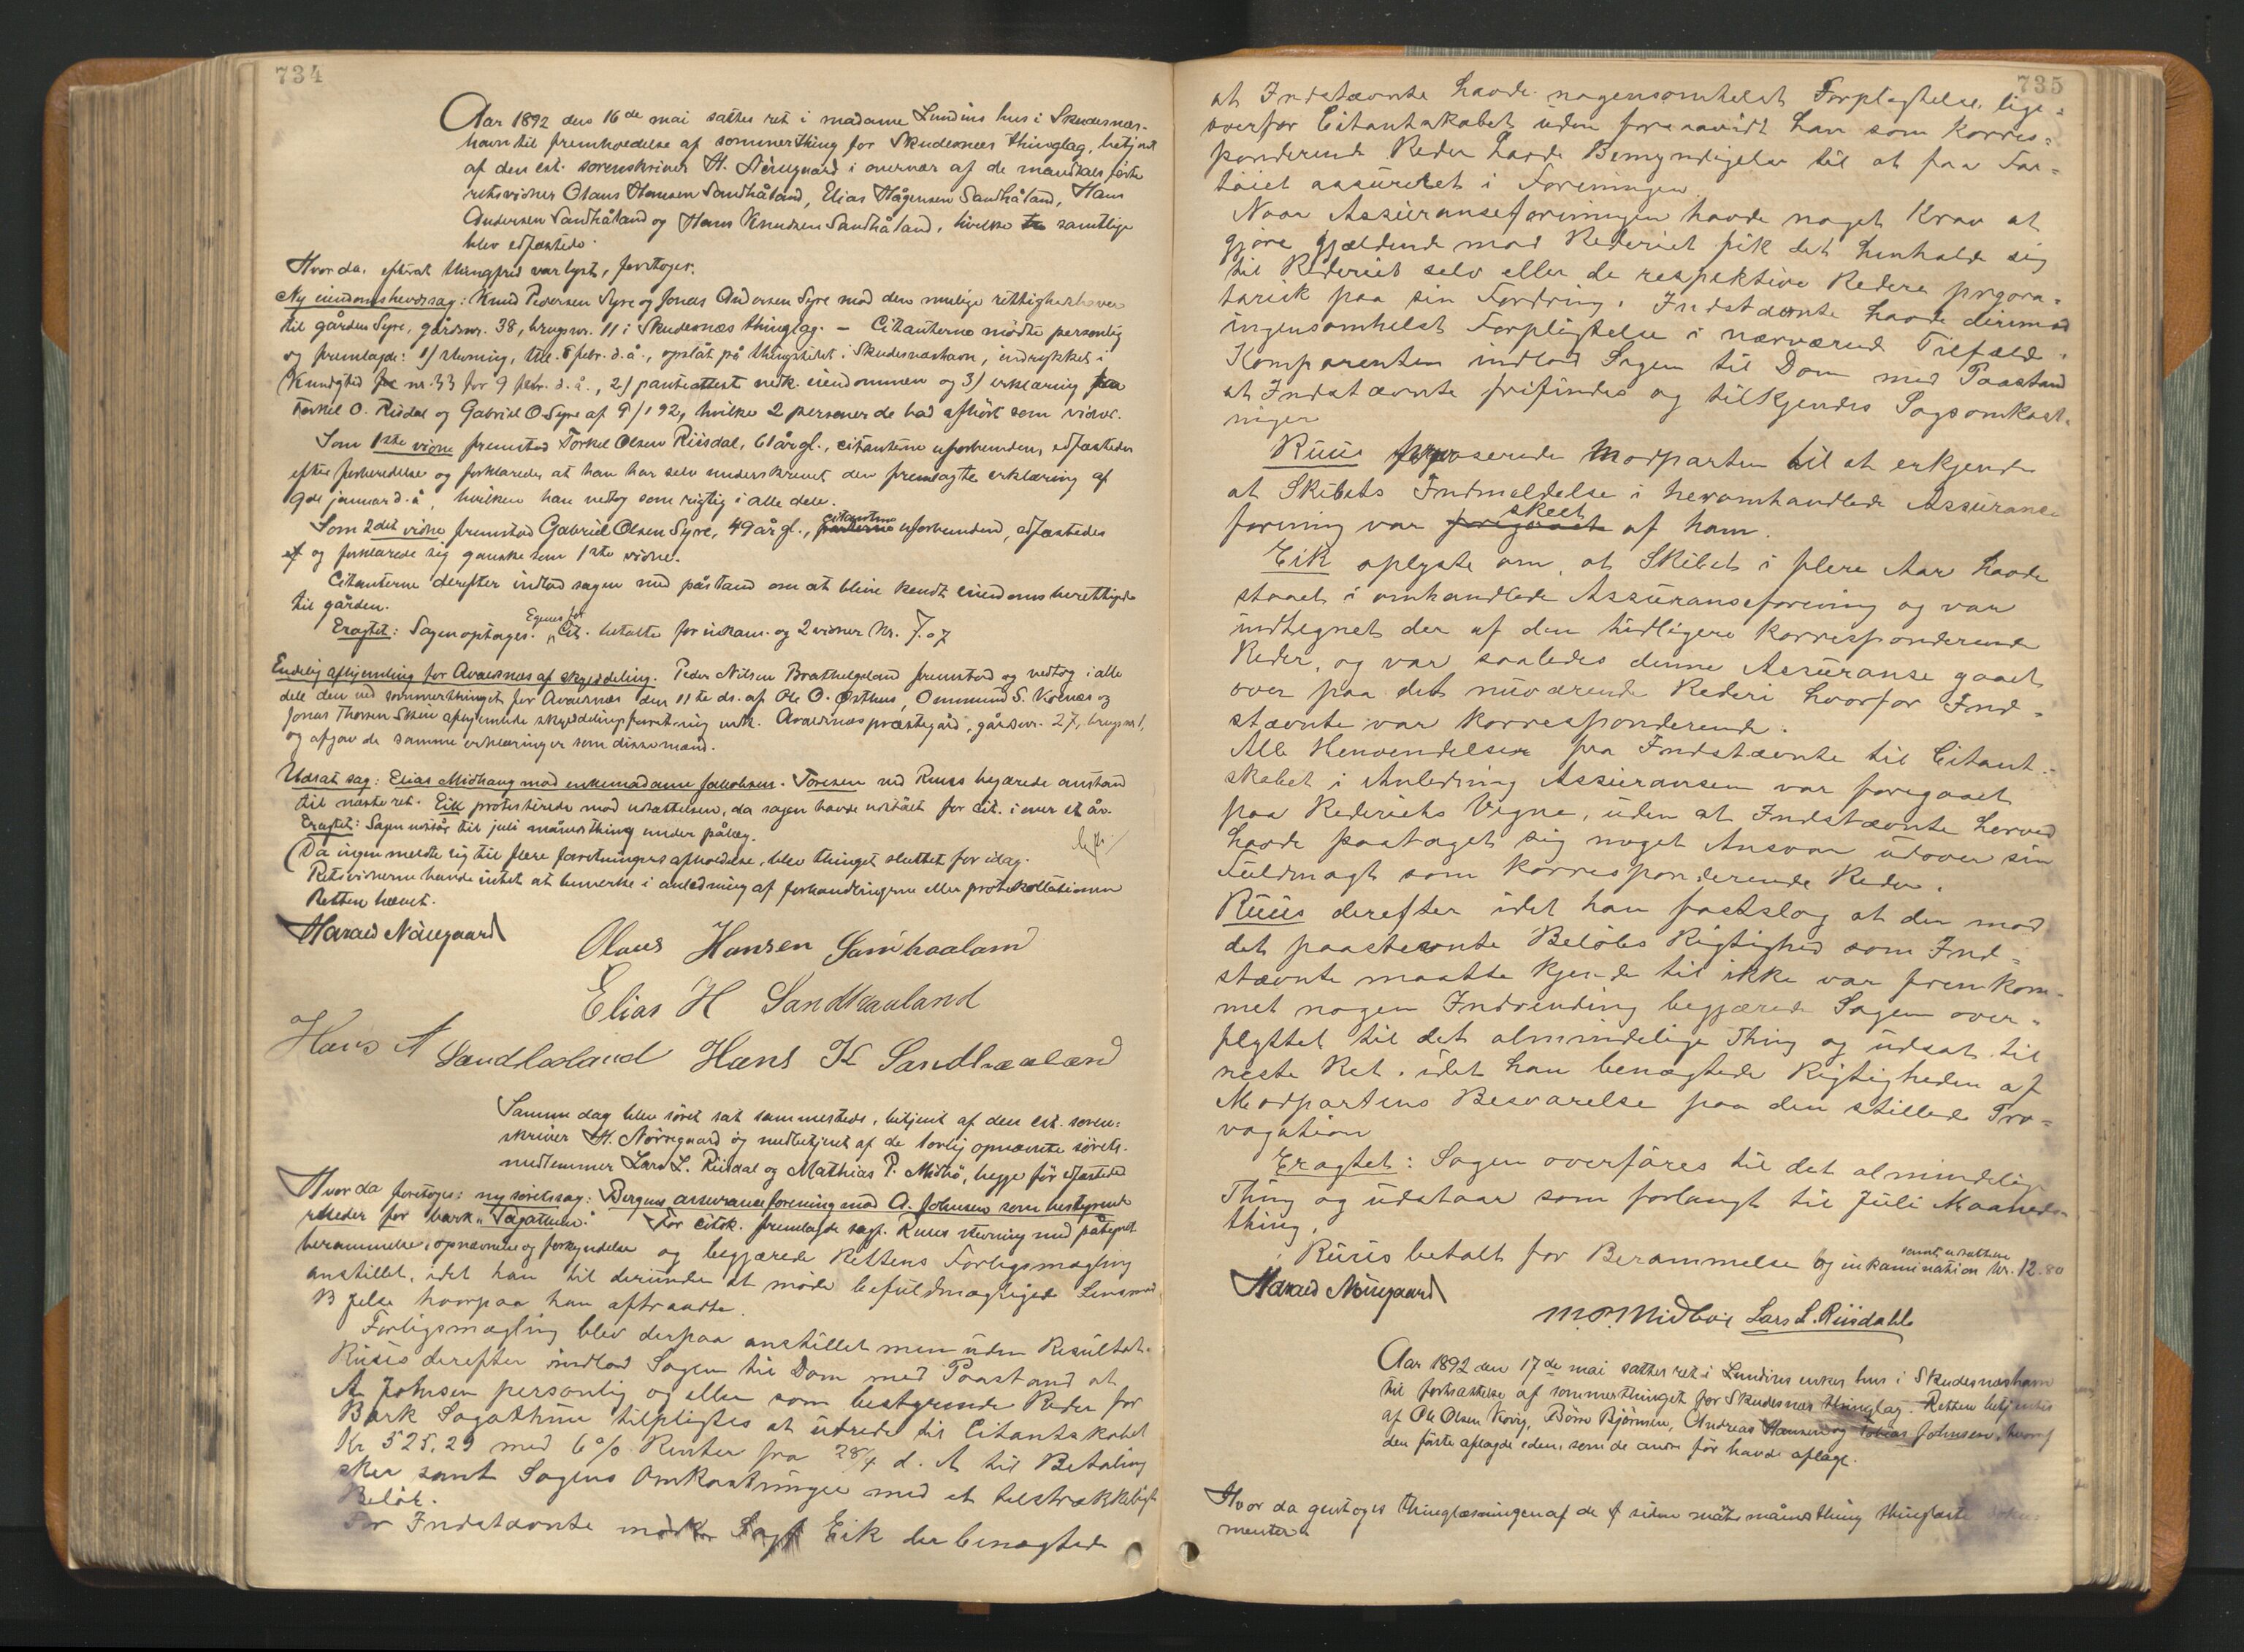 734
Aar 1892 den 16de mai sattes ret i madame Lundins hus i Skudesnæs-
havn til fremholdelse af sommerthing for Skudesnes thinglag, betjent
af den cst. sorenskriver H. Nörregaard i overvær af de mandtalsförte
retsvidner Olaus Hansen Sandhåland, Elias Hågensen Sandhåland, Hans
Andersen Sandhåland og Hans Knudsen Sandhåland, hvilke samtlige
blev edfæstede.
Hvor da, efterat thingfred var lyst, foretoges:
Ny eiendomshevdssag: Knud Pedersen Syre og Jonas Andersen Syre mod den mulige rettighedshaver
til gården Syre, gårdsnr. 38, brugsnr. 11 i Skudesnæs thinglag. – Citanterne mödte personlig
og fremlagde: 1) stevning, febr. d. å., opslåt på thingstedet i Skudesnæshavn, indrykket i
Kundgjd nr. 33 for 9 febr. d. å., 2) panteattest vedk. eiendommen og 3) erklæring fra
Torkel O. Risdal og Gabriel O Syre af 9/1 92, hvilke 2 personer de bad afhört som vidner.
Som 1ste vidne fremstod Torkel Olsen Riisdal, 61 år gl., citanterne uforbunden, edfæstedes
efter forberedelse og forklarede, at han har selv underskrevet den fremlagte erklæring af
9de januar d. å, hvilken han vedtog som rigtig i alle dele.
Som 2det vidne fremstod Gabriel Olsen Syre, 49 år gl., citanterne uforbunden, edfæstedes
og forklarede sig ganske som 1ste vidne.
Citanterne derefter indlod sagen med påstand om at blive kendt eiendomsberettigede
til gården.
Eragtet: Sagen optages. Cit. betalte for inkam. og 2 vidner kr. 7.07
Endelig afhjemling for Avaldsnes af skylddeling. Peder Nilsen Brathelgeland fremstod og vedtog i alle
dele den ved sommerthinget for Avaldsnæs den 11te ds. af Ole O. Østhus, Ommund S. Visnes og
Jonas Thorsen Skeie afhjemlede skylddelingsforretning vedk. Avaldsnæs præstegård, gårdsnr. 27, brugsnr 1,
og afgav de samme erklæringer som disse mænd.
Udsat sag: Elias Midhaug mod enkemadame Jakobsen. Toresen ved Ruus begærede anstand
til næste ret. Eik protesterede mod udsættelsen, da sagen havde udstået for cit. i over et år.
Eragtet: Sagen udstår til juli månedsthing under pålæg.
Da ingen meldte sig til flere forretningers afholdelse, blev thinget sluttet for idag.
Retsvidnerne havde intet at bemærke i anledning af forhandlingerne eller protokollationen
Retten hævet.
Harald Nörregaard
Olaus Hansen Sandhaaland
Elias H Sandhaaland
Hans A Sandhaaland Hans K Sandhaaland
Samme dag blev söret sat sammesteds, betjent af den cst. soren:
skriver H. Nörregaard og medbetjent af de lovlig opnævnte sörets.
medlemmer Lars L. Riisdal og Mathias P. Midbö, begge för edfæstede
Hvor da foretoges: ny söretssag: Bergens assuranceforening mod A. Johnsen som bestyrende
rheder for bark "Sagathun." For citsk. fremlagde sagf. Ruus stevning med påtegnet
berammelse, opnævnelse og forkyndelse og begjærede Rettens Forligsmægling
anstillet, idet han til derunder at möde befuldmægtigede Lensmand
B Jelsa hvorpaa han aftraadte.
Forligsmægling blev derpaa anstillet men uden Resultat.
Ruus derefter indlod Sagen til Dom med Paastand at
A Johnsen personlig og eller som bestyrende Reder for
Bark Sagathun tilpligtes at udrede til Citantskabet
Kr 525,29 med 6% Renter fra 28/4 d. A til Betaling
sker samt Sagens Omkostninger med et tilstrækkeligt
Belöb.
For Indstævnte mödte Sagf Eik der benægtede
735
at Indstævnte havde nogensomhelst Forpligtelse lige-
overfor Citantskabet uden forsaavidt han som Korres-
ponderende Reder havde Bemyndigelse til at faa Far-
töiet assureret i Foreningen.
Naar Assuranseforeningen havde noget Krav at
gjöre gjældende mod Rederiet fik det henholde sig
til Rederiet selv eller de respektive Redere prgora-
tarisk paa sin Fordring. Indstævnte havde derimod
ingensomhelst Forpligtelse i nærværend Tilfælde.
Komparenten indlod Sagen til Dom med Paastand
at Indstævnte frifindes og tilkjendes Sagsomkost-
ninger
Ruus Modparten til at erkjende
at Skibets Indmeldelse i heromhandlede Assurance
forening var foregaaet skeet af ham.
Eik oplyste om, at Skibet i flere Aar havde
staaet i omhandlede Assuranseforening og var
indtegnet der af den tidligere korresponderende
Reder, og var saaledes denne Assuranse gaaet
over paa det nuværende Rederi hvorfor Ind-
stævnte var korresponderende.
Alle Henvendelser fra Indstævnte til Citant-
skabet i Anledning Assuransen var foregaaet
paa Rederiets Vegne, uden at Indstævnte herved
havde paataget sig noget Ansvar udover sin
Fuldmagt som korresponderende Reder.
Ruus derefter idet han fastslog at der mod
det paastevnte Belöbs Rigtighed som Ind-
stævnte maatte kjende til ikke var fremkom-
met nogen Indvending begjærede Sagen over-
flyttet til det almindelige Thing og udsat til
neste Ret. idet han benægtede Rigtigheden af
Modpartens Besvarelse paa den stillede Pro-
vogation
Eragtet: Sagen overföres til det almindelige
Thing og udstaar som forlangt til Juli Maaneds
thing.
Ruus betalt for Berammelse og inkamination samt udsættelse kr. 12.80
Harald Nörregaard
M. P. Midböe Lars L. Riisdahl
Aar 1892 den 17de mai sattes ret i Lundins enkes hus i Skudesnæshavn
til fortsættelse af sommerthinget for Skudesnæs thinglag. Retten betjentes
af Ole Olsen Kvæg, Börre Björnsen, Andreas Hansen og Tobias Johnsen, hvoraf
den förste aflagde eden, som de andre för havde aflagt.
Hvor da gentoges thinglæsningen af de siden månedsthing thinglæste
menter